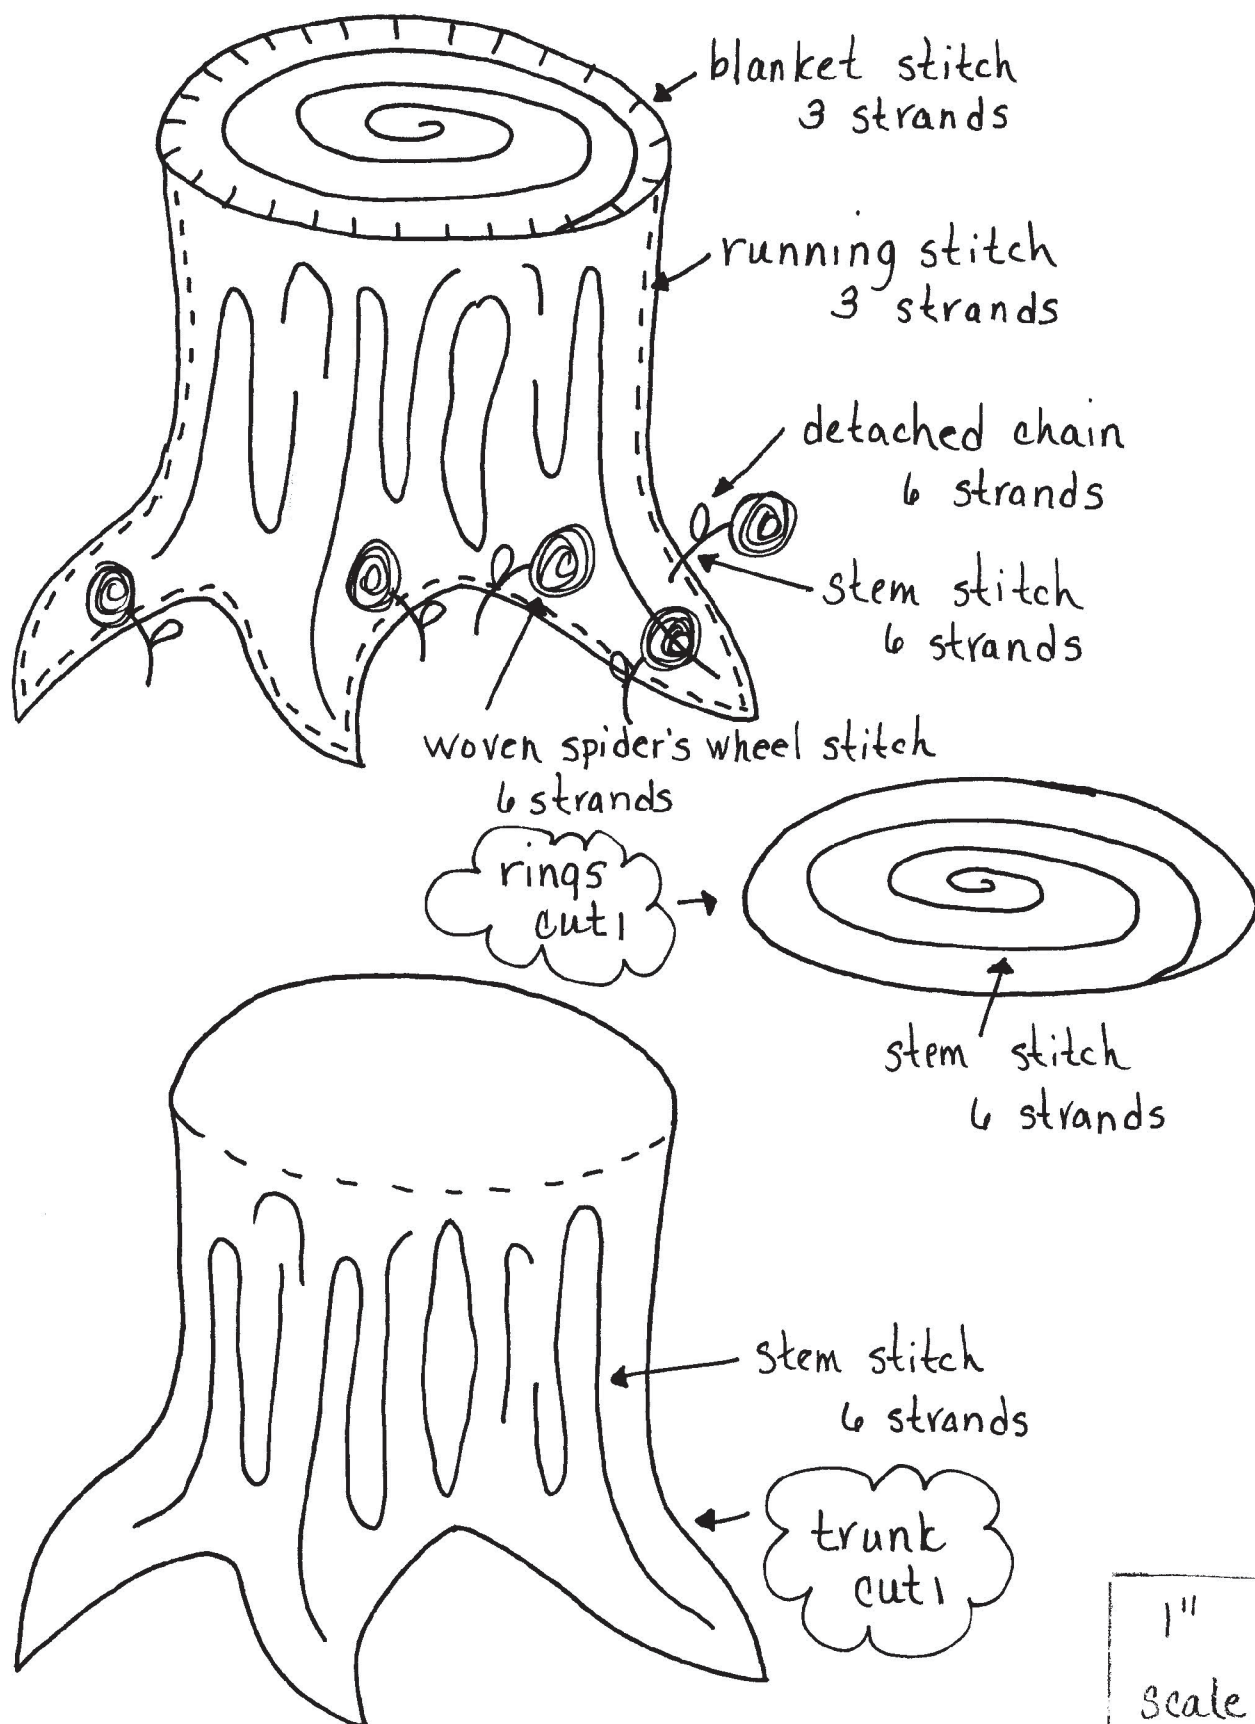 blanket stitch
3 strands
running stitch
3 strands
detached chain
6 strands
stem stitch
6 strands
woven spider's wheel stitch
6 strands
rings
cut 1
stem stitch
6 strands
stem stitch
6 strands
trunk
cut 1
1"
scale